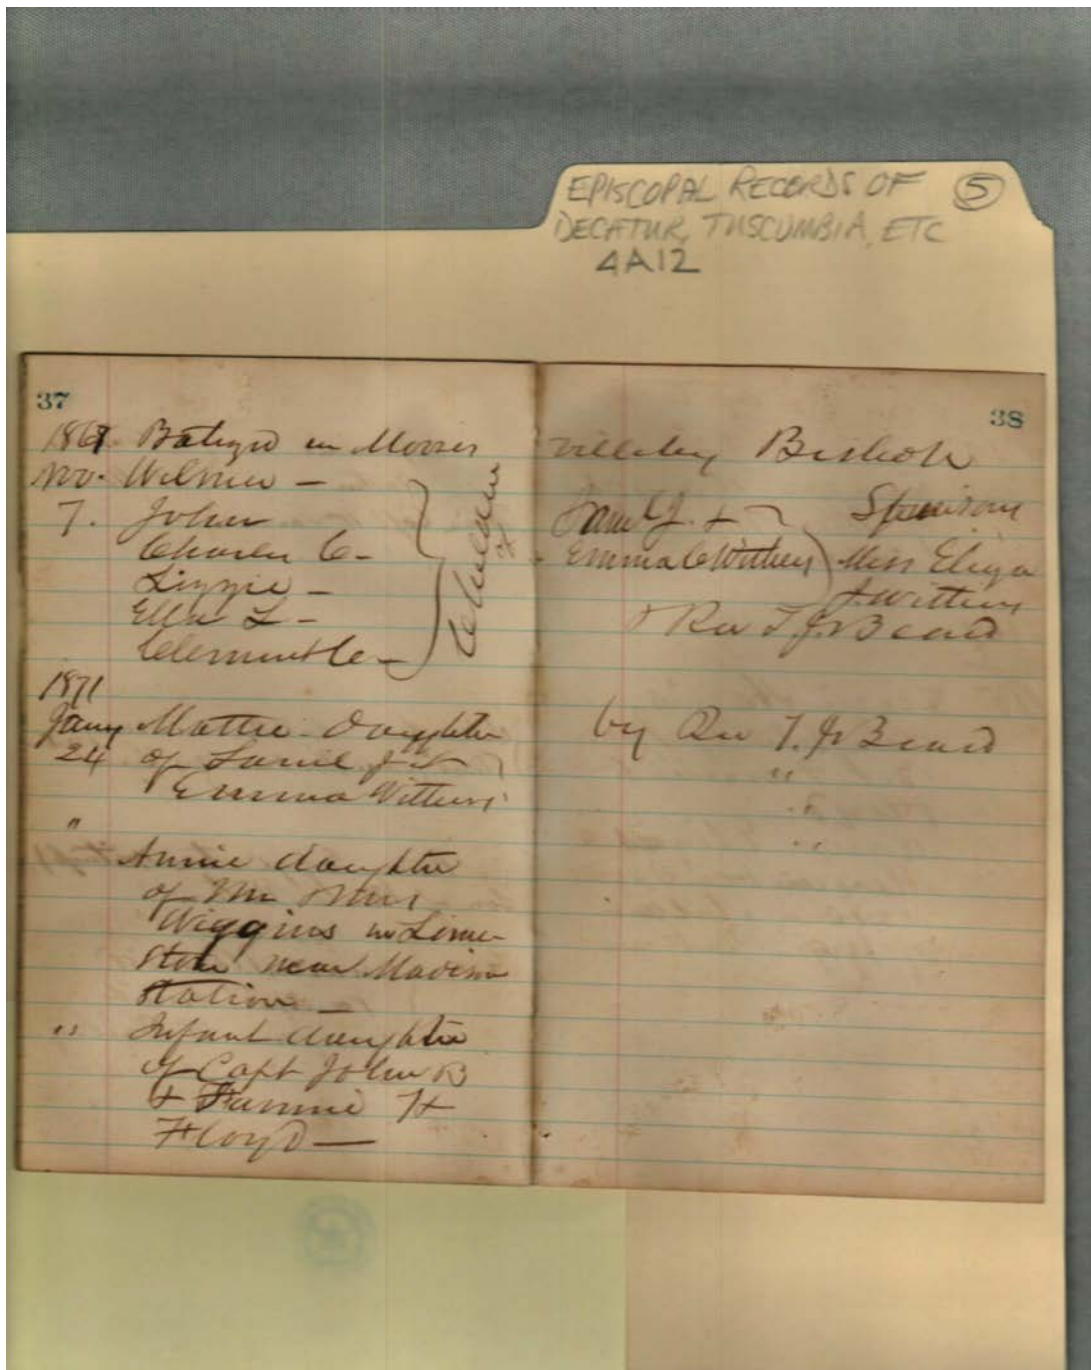 EPISCOPAL RECORDS OF 5
DECATUR, TUSCUMBIA, ETC
4A12
37
Batizd in Moores
Nov. Wilmer -
7. John
Charles C-
Lizzie -
Ella L-
Clement C-
Children of
1871
Jany Mattie daughter
24 of &
Emma Withers
"
Annie daughter
of Mr Mrs
Wiggins in Lime
stone near Madison
Station -
" Infant daughter
of Capt John B
& Fannie H
Floyd -
38
ville by Bishop
Saml J. & Sponsors
Emma C Withers Miss Eliza
Withers
& Rev T. J. Beard
by Rev T. J. Beard
"
"
"